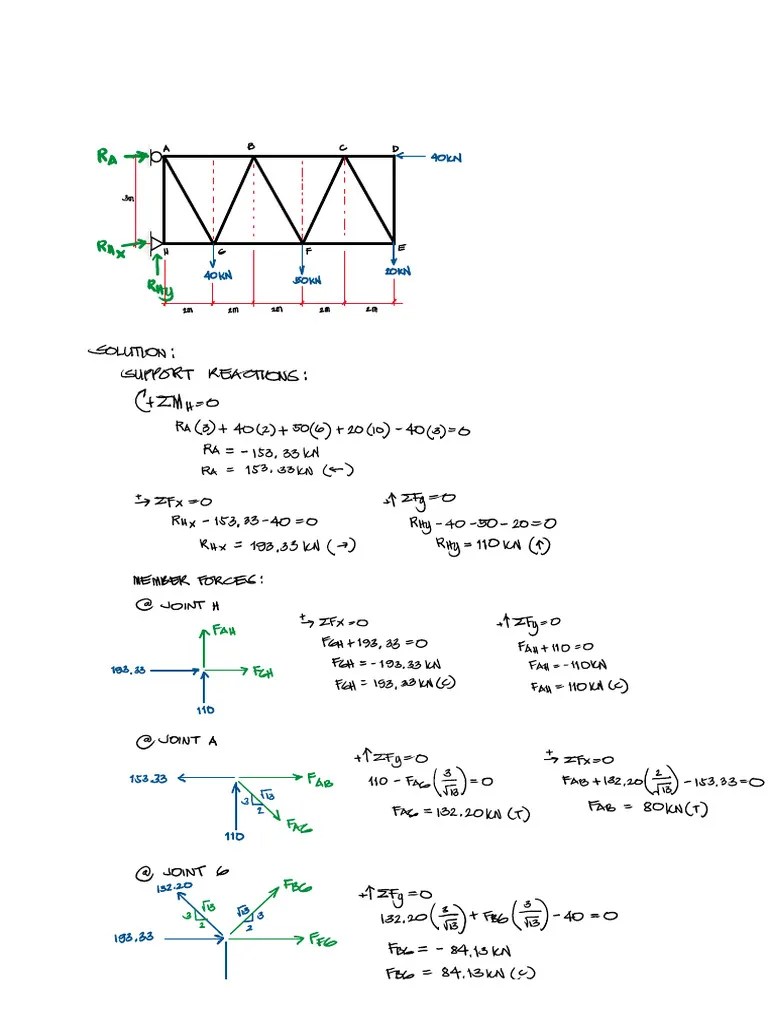 A B C D
R_A → 40KN
3m
R_Hx H G F E
R_Hy 40KN 50KN 20KN
2m 2m 2m 2m 2m
SOLUTION:
SUPPORT REACTIONS:
+ΣM_H=0
R_A(3)+40(2)+50(6)+20(10)-40(3)=0
R_A = -153.33KN
R_A = 153.33KN (←)
+→ ΣFx=0 +↑ΣFy=0
R_Hx -153.33-40=0 R_Hy-40-50-20=0
R_Hx = 193.33KN (→) R_Hy=110KN (↑)
MEMBER FORCES:
@ JOINT H
F_AH
193.33 F_GH
110
+→ ΣFx=0 +↑ΣFy=0
F_GH+193.33=0 F_AH+110=0
F_GH=-193.33KN F_AH=-110KN
F_GH=193.33KN(C) F_AH=110KN(C)
@ JOINT A
153.33 F_AB
3 √13 2 F_AG
110
+↑ΣFy=0 +→ ΣFx=0
110-F_AG(3/√13)=0 F_AB+132.20(2/√13)-153.33=0
F_AG=132.20KN(T) F_AB = 80KN(T)
@ JOINT G
132.20 F_BG
3 √13 2 √13 3 2
193.33 F_FG
+↑ΣFy=0
132.20(3/√13)+F_BG(3/√13)-40=0
F_BG=-84.13KN
F_BG = 84.13KN(C)